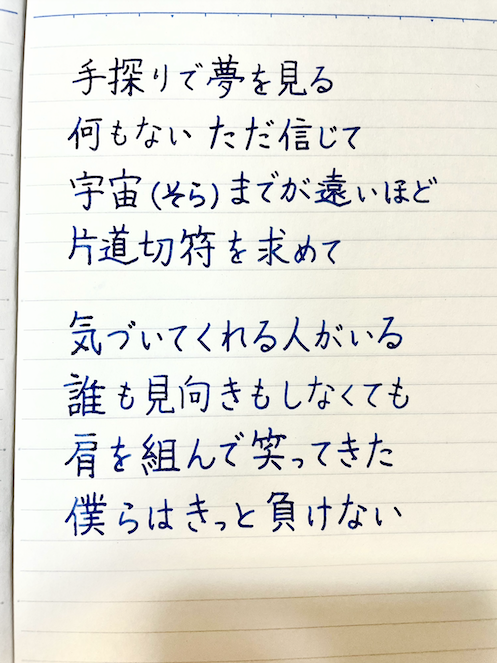 手探りで夢を見る
何もない ただ信じて
宇宙(そら)までが遠いほど
片道切符を求めて
気づいてくれる人がいる
誰も見向きもしなくても
肩を組んで笑ってきた
僕らはきっと負けない